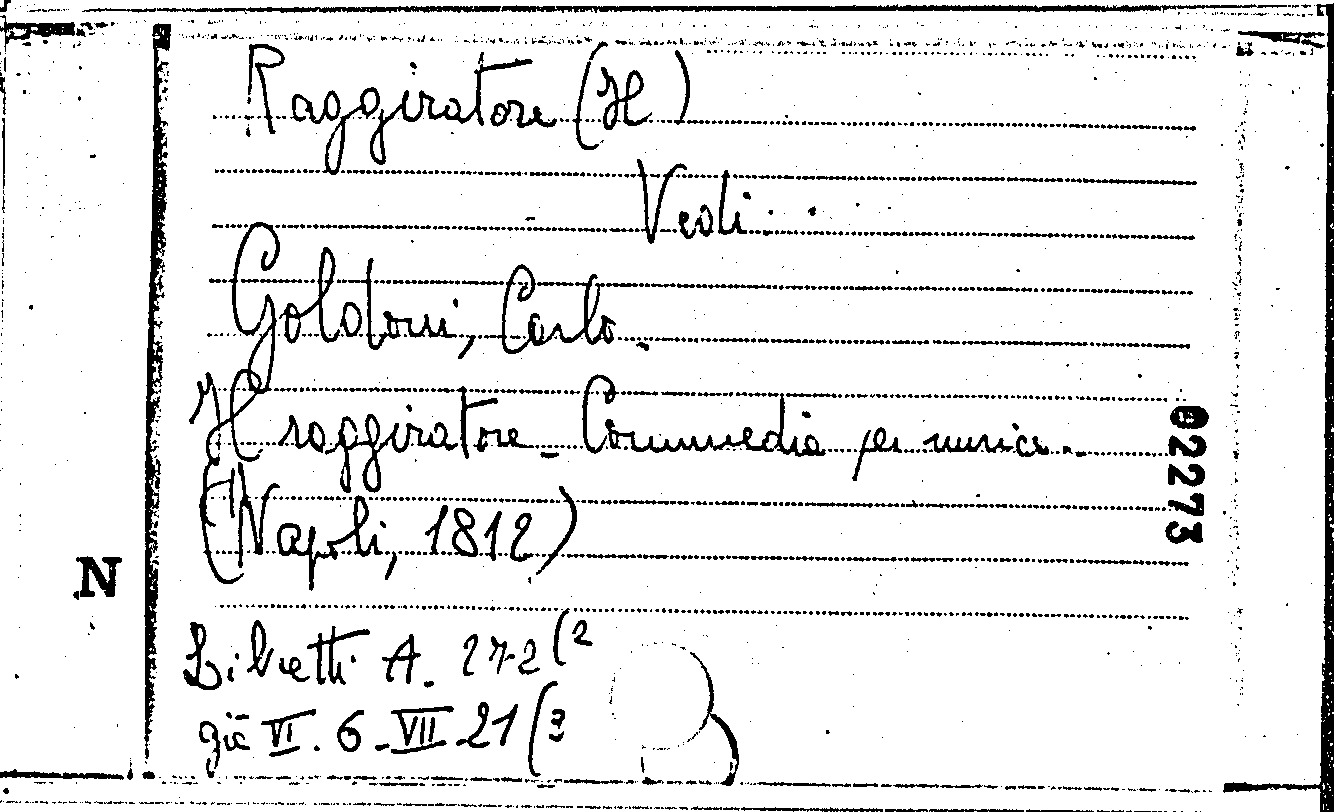 Raggiratore (Il)
Vedi:
Goldoni, Carlo.
Il raggiratore. Commedia per musica.
(Napoli, 1812)
Libretti A. 272 (2
già VI. 6. VII. 21 (3
N
02273